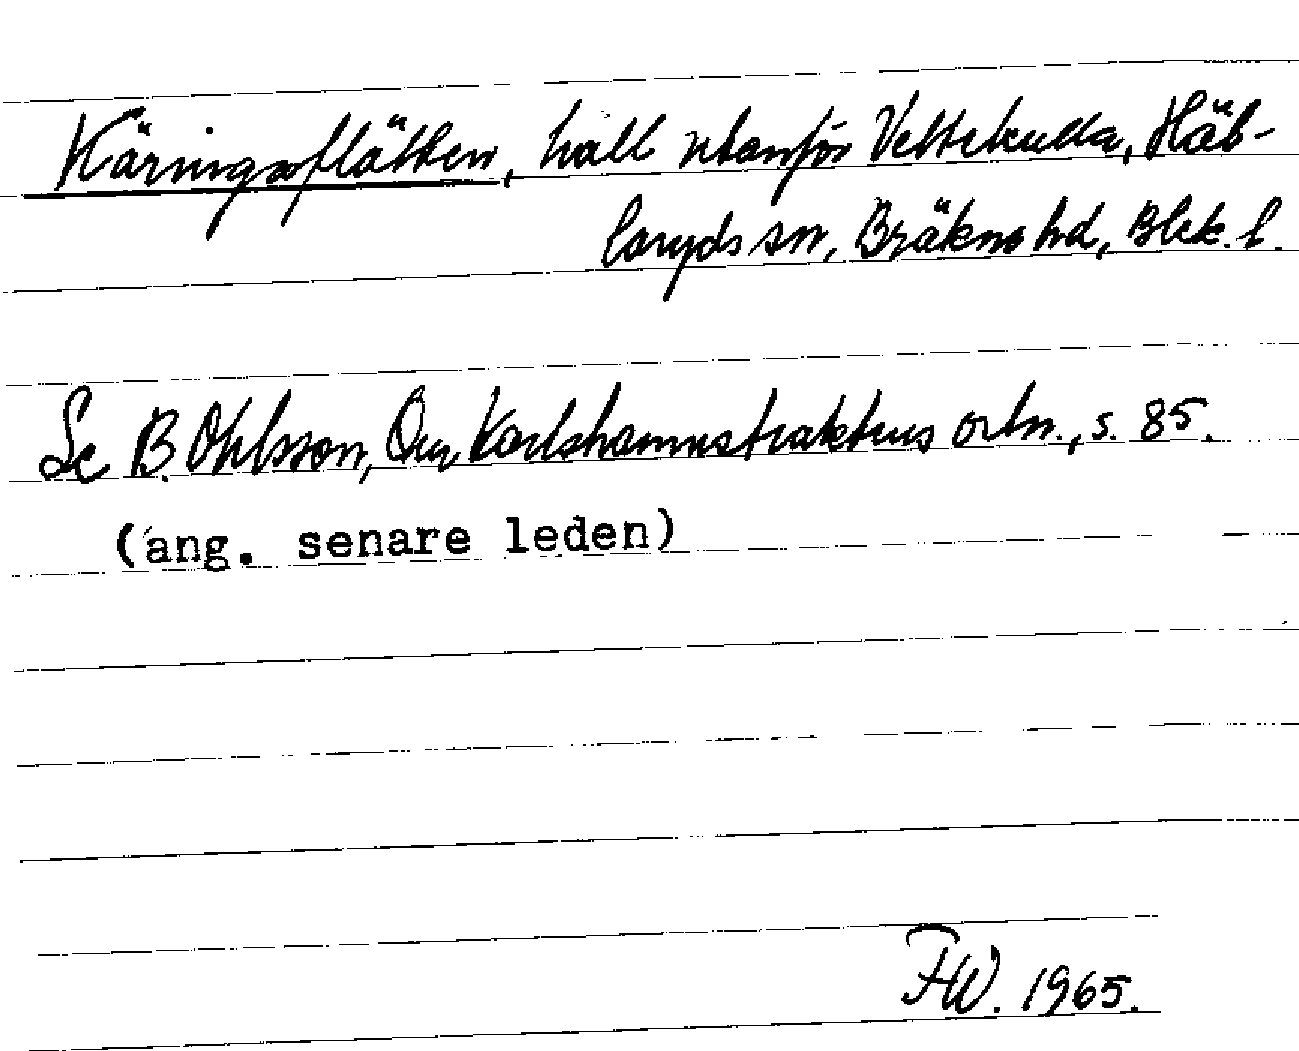 Käringaflätten, häll utanför Vettekulla, Häl-
laryds sn, Bräkne hd, Blek. l.
Se B. Ohlsson, Om Karlshamnstraktens ortn., s. 85.
(ang. senare leden)
FW. 1965.